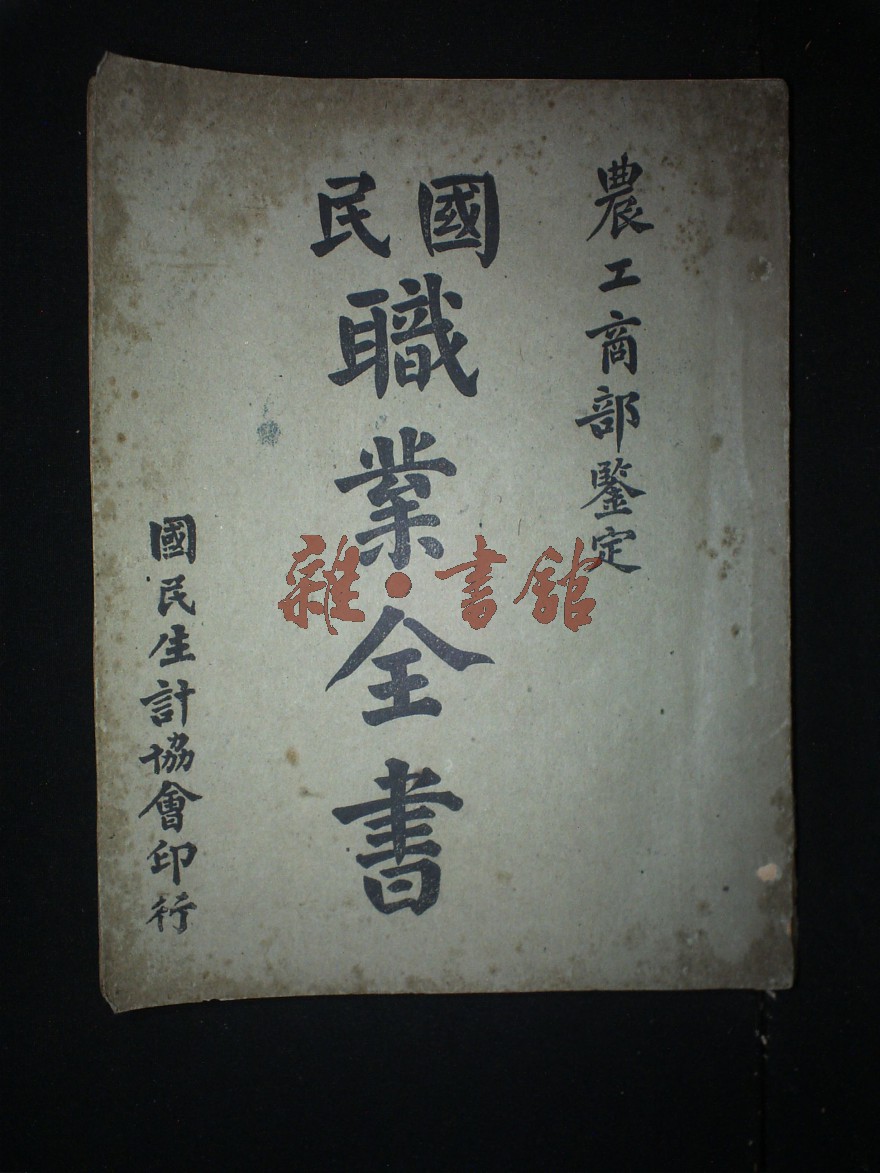 農工商部鑒定
國民
職業全書
國民生計協會印行
雜·書館